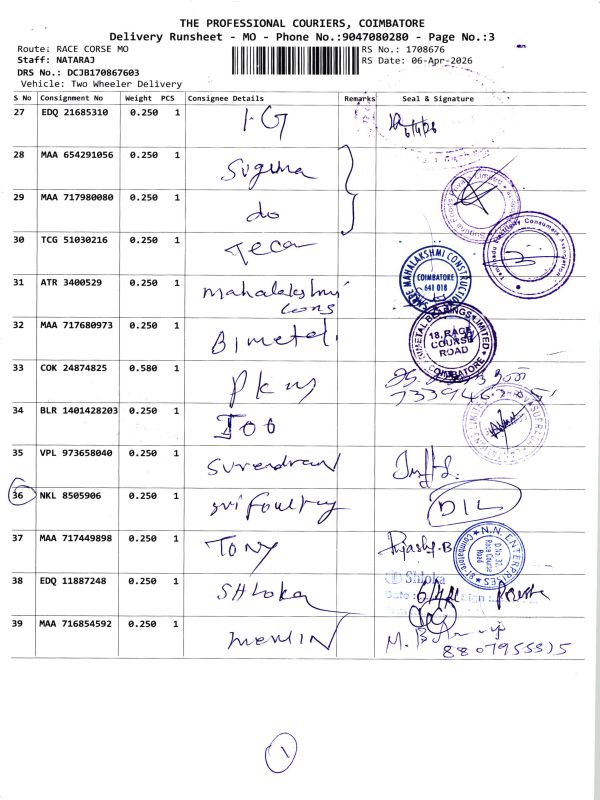 THE PROFESSIONAL COURIERS, COIMBATORE
Delivery Runsheet - MO - Phone No.:9047080280 - Page No.:3
Route: RACE CORSE MO
RS No.: 1708676
Staff: NATARAJ
RS Date: 06-Apr-2026
DRS No.: DCJB170867603
Vehicle: Two Wheeler Delivery
S No Consignment No Weight PCS Consignee Details Remarks Seal & Signature
27 EDQ 21685310 0.250 1 I-G
28 MAA 654291056 0.250 1 Suguna
29 MAA 717980080 0.250 1 do
30 TCG 51030216 0.250 1 Teca
31 ATR 3400529 0.250 1 mahalakshmi
cons
COIMBATORE
641 018
32 MAA 717680973 0.250 1 Bimetal
18, RACE
COURSE
ROAD
COIMBATORE
33 COK 24874825 0.580 1
34 BLR 1401428203 0.250 1
35 VPL 973658040 0.250 1 Surendran
36 NKL 8505906 0.250 1 Sri Poultry DIL
37 MAA 717449898 0.250 1 TONY
N.N. ENTERPRISES
Race Course
Road
38 EDQ 11887248 0.250 1 SHLoka
Shloka
39 MAA 716854592 0.250 1 merlin
8807955515
1